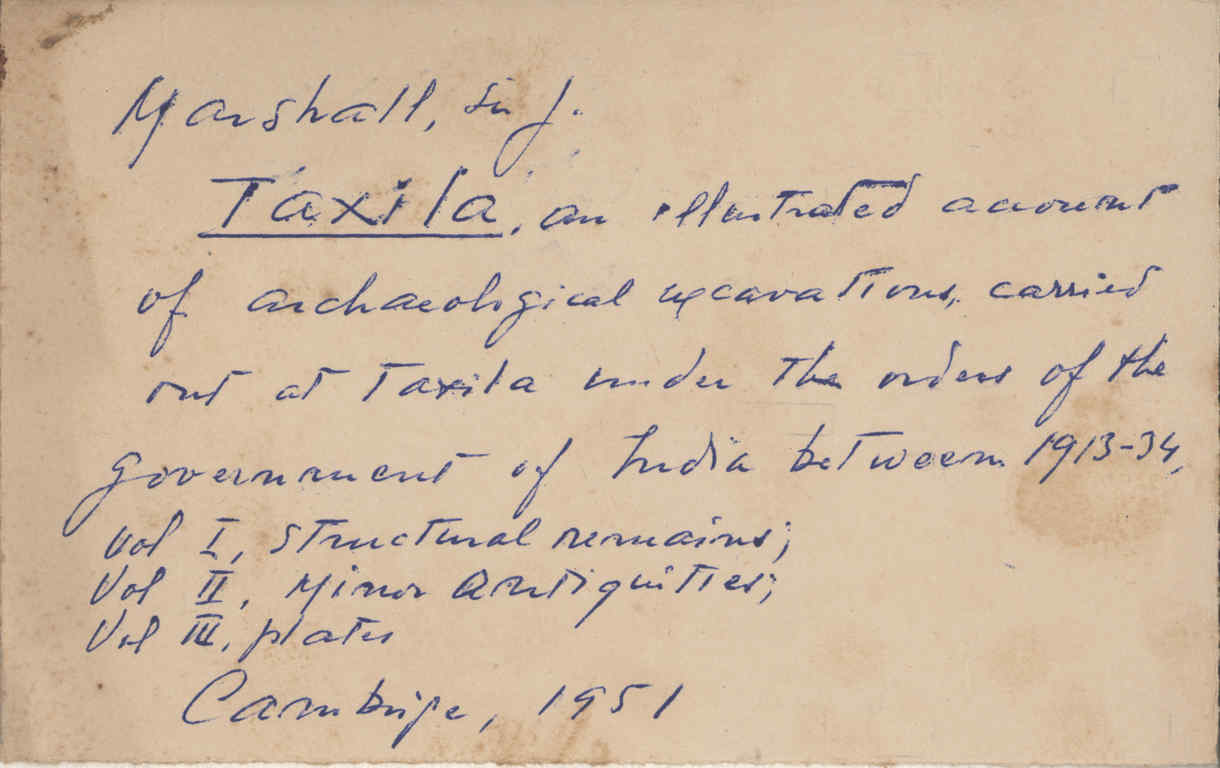 Marshall, Sir J.
Taxila, an illustrated account
of archaeological excavations, carried
out at Taxila under the orders of the
government of India between 1913-34,
Vol I, Structural remains;
Vol II, Minor Antiquities;
Vol III, plates
Cambrige, 1951